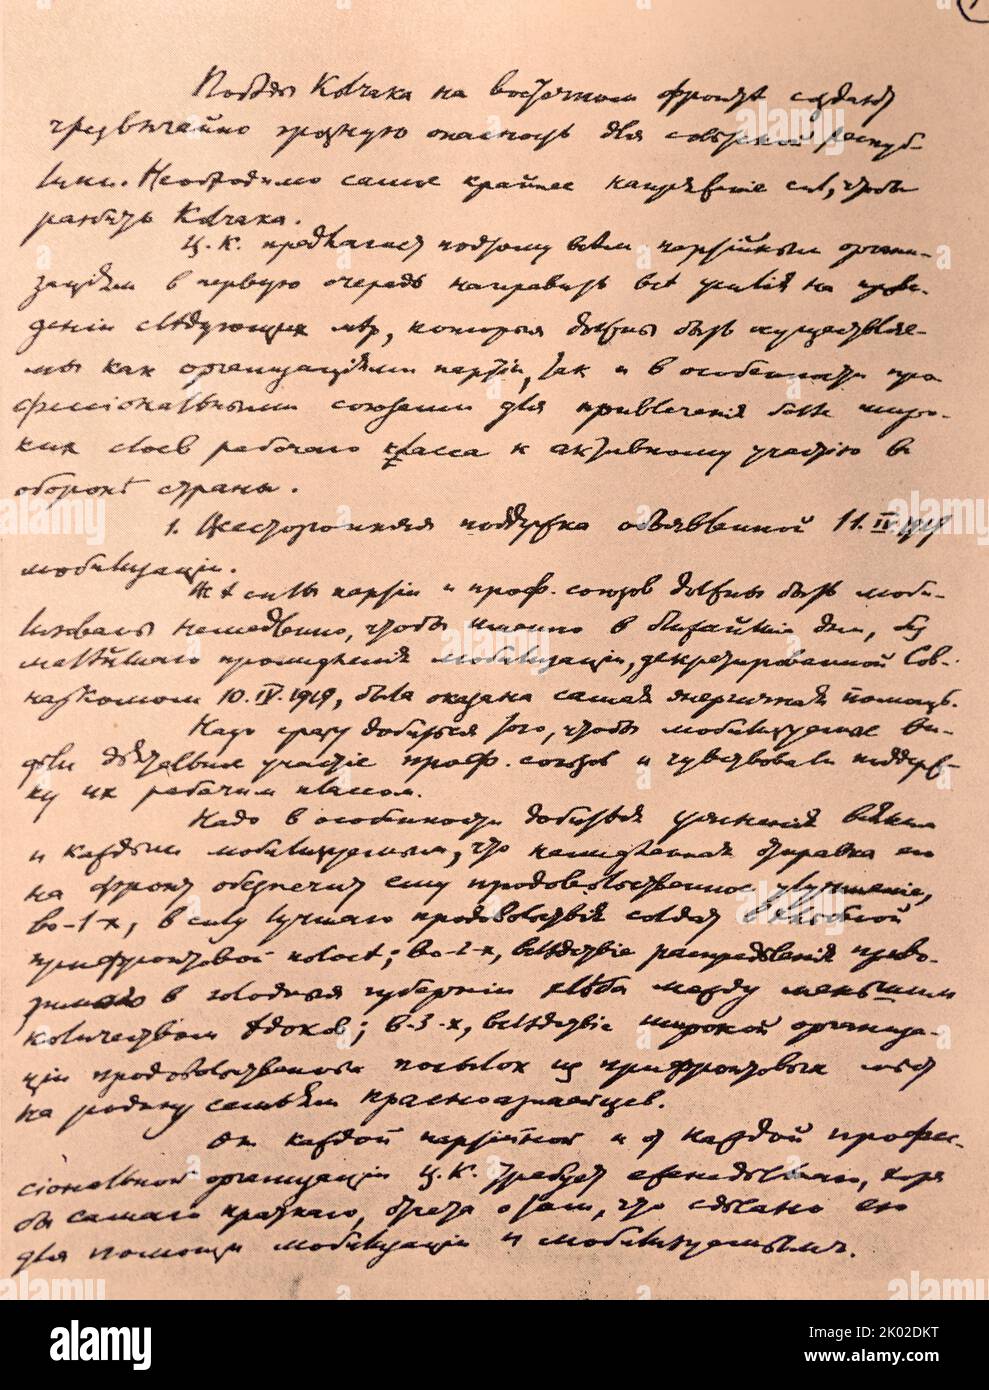 Победы Колчака на восточном фронте создают
чрезвычайно грозную опасность для советской респуб-
лики. Необходимо самое крайнее напряжение сил, чтобы
разбить Колчака.
Ц. К. предлагает поэтому всѣм партійным органи-
заціям в первую очередь направить всѣ усилія на прове-
деніе слѣдующих мѣр, которыя должны быть осуществляе-
мы как организаціями партіи, так и в особенности про
фессіональными союзами для привлеченія более широ-
ких слоев рабочаго класса к активному участію в
оборонѣ страны.
1. Всесторонняя поддержка объявленной 11.IV.1919
мобилизаціи.
Всѣ силы партіи и проф. союзов должны быть моби-
лизованы немедленно, чтобы именно в ближайшіе дни, без
малѣйшаго промедленія мобилизаціи, декретированной Сов-
наркомом 10.IV.1919, была оказана самая энергичная помощь.
Надо сразу добиться того, чтобы мобилизуемые ви-
дѣли дѣятельное участіе проф. союзов и чувствовали поддерж-
ку их рабочим классом.
Надо в особенности добиться уясненія всѣкому
и каждому мобилизуемому, что немедленная отправка его
на фронт обеспечит ему продовольственное улучшеніе,
во-1-х, в силу лучшаго продовольствія солдат в хлѣбной
прифронтовой полосѣ; во-2-х, вслѣдствіе распредѣленія приво-
зимаго в голодныя губерніи хлѣба между меньшим
количеством ѣдоков; в-3-х, вслѣдствіе широкой организа-
ціи продовольственных посылок из прифронтовых мѣст
на родину семьям красноармейцев.
От каждой партійной и от каждой профес-
сіональной организаціи Ц. К. требует еженедѣльнаго, хотя
бы самаго краткаго, отчета о том, что сдѣлано ею
для помощи мобилизаціи и мобилизуемым.
alamy
Image ID: 2K02DKT
www.alamy.com